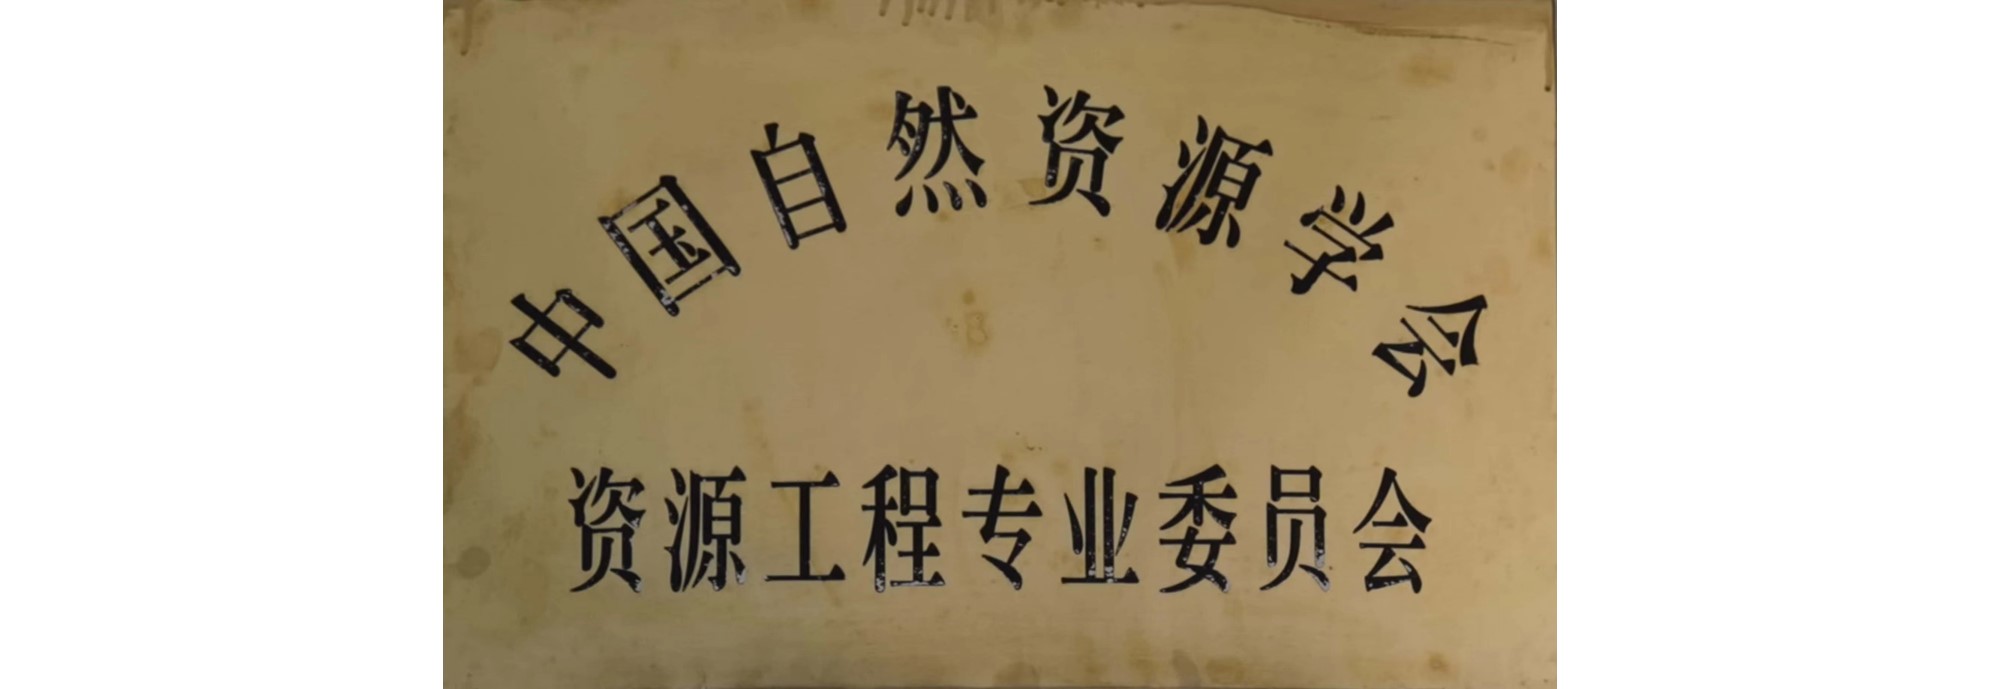 中国自然资源学会
资源工程专业委员会